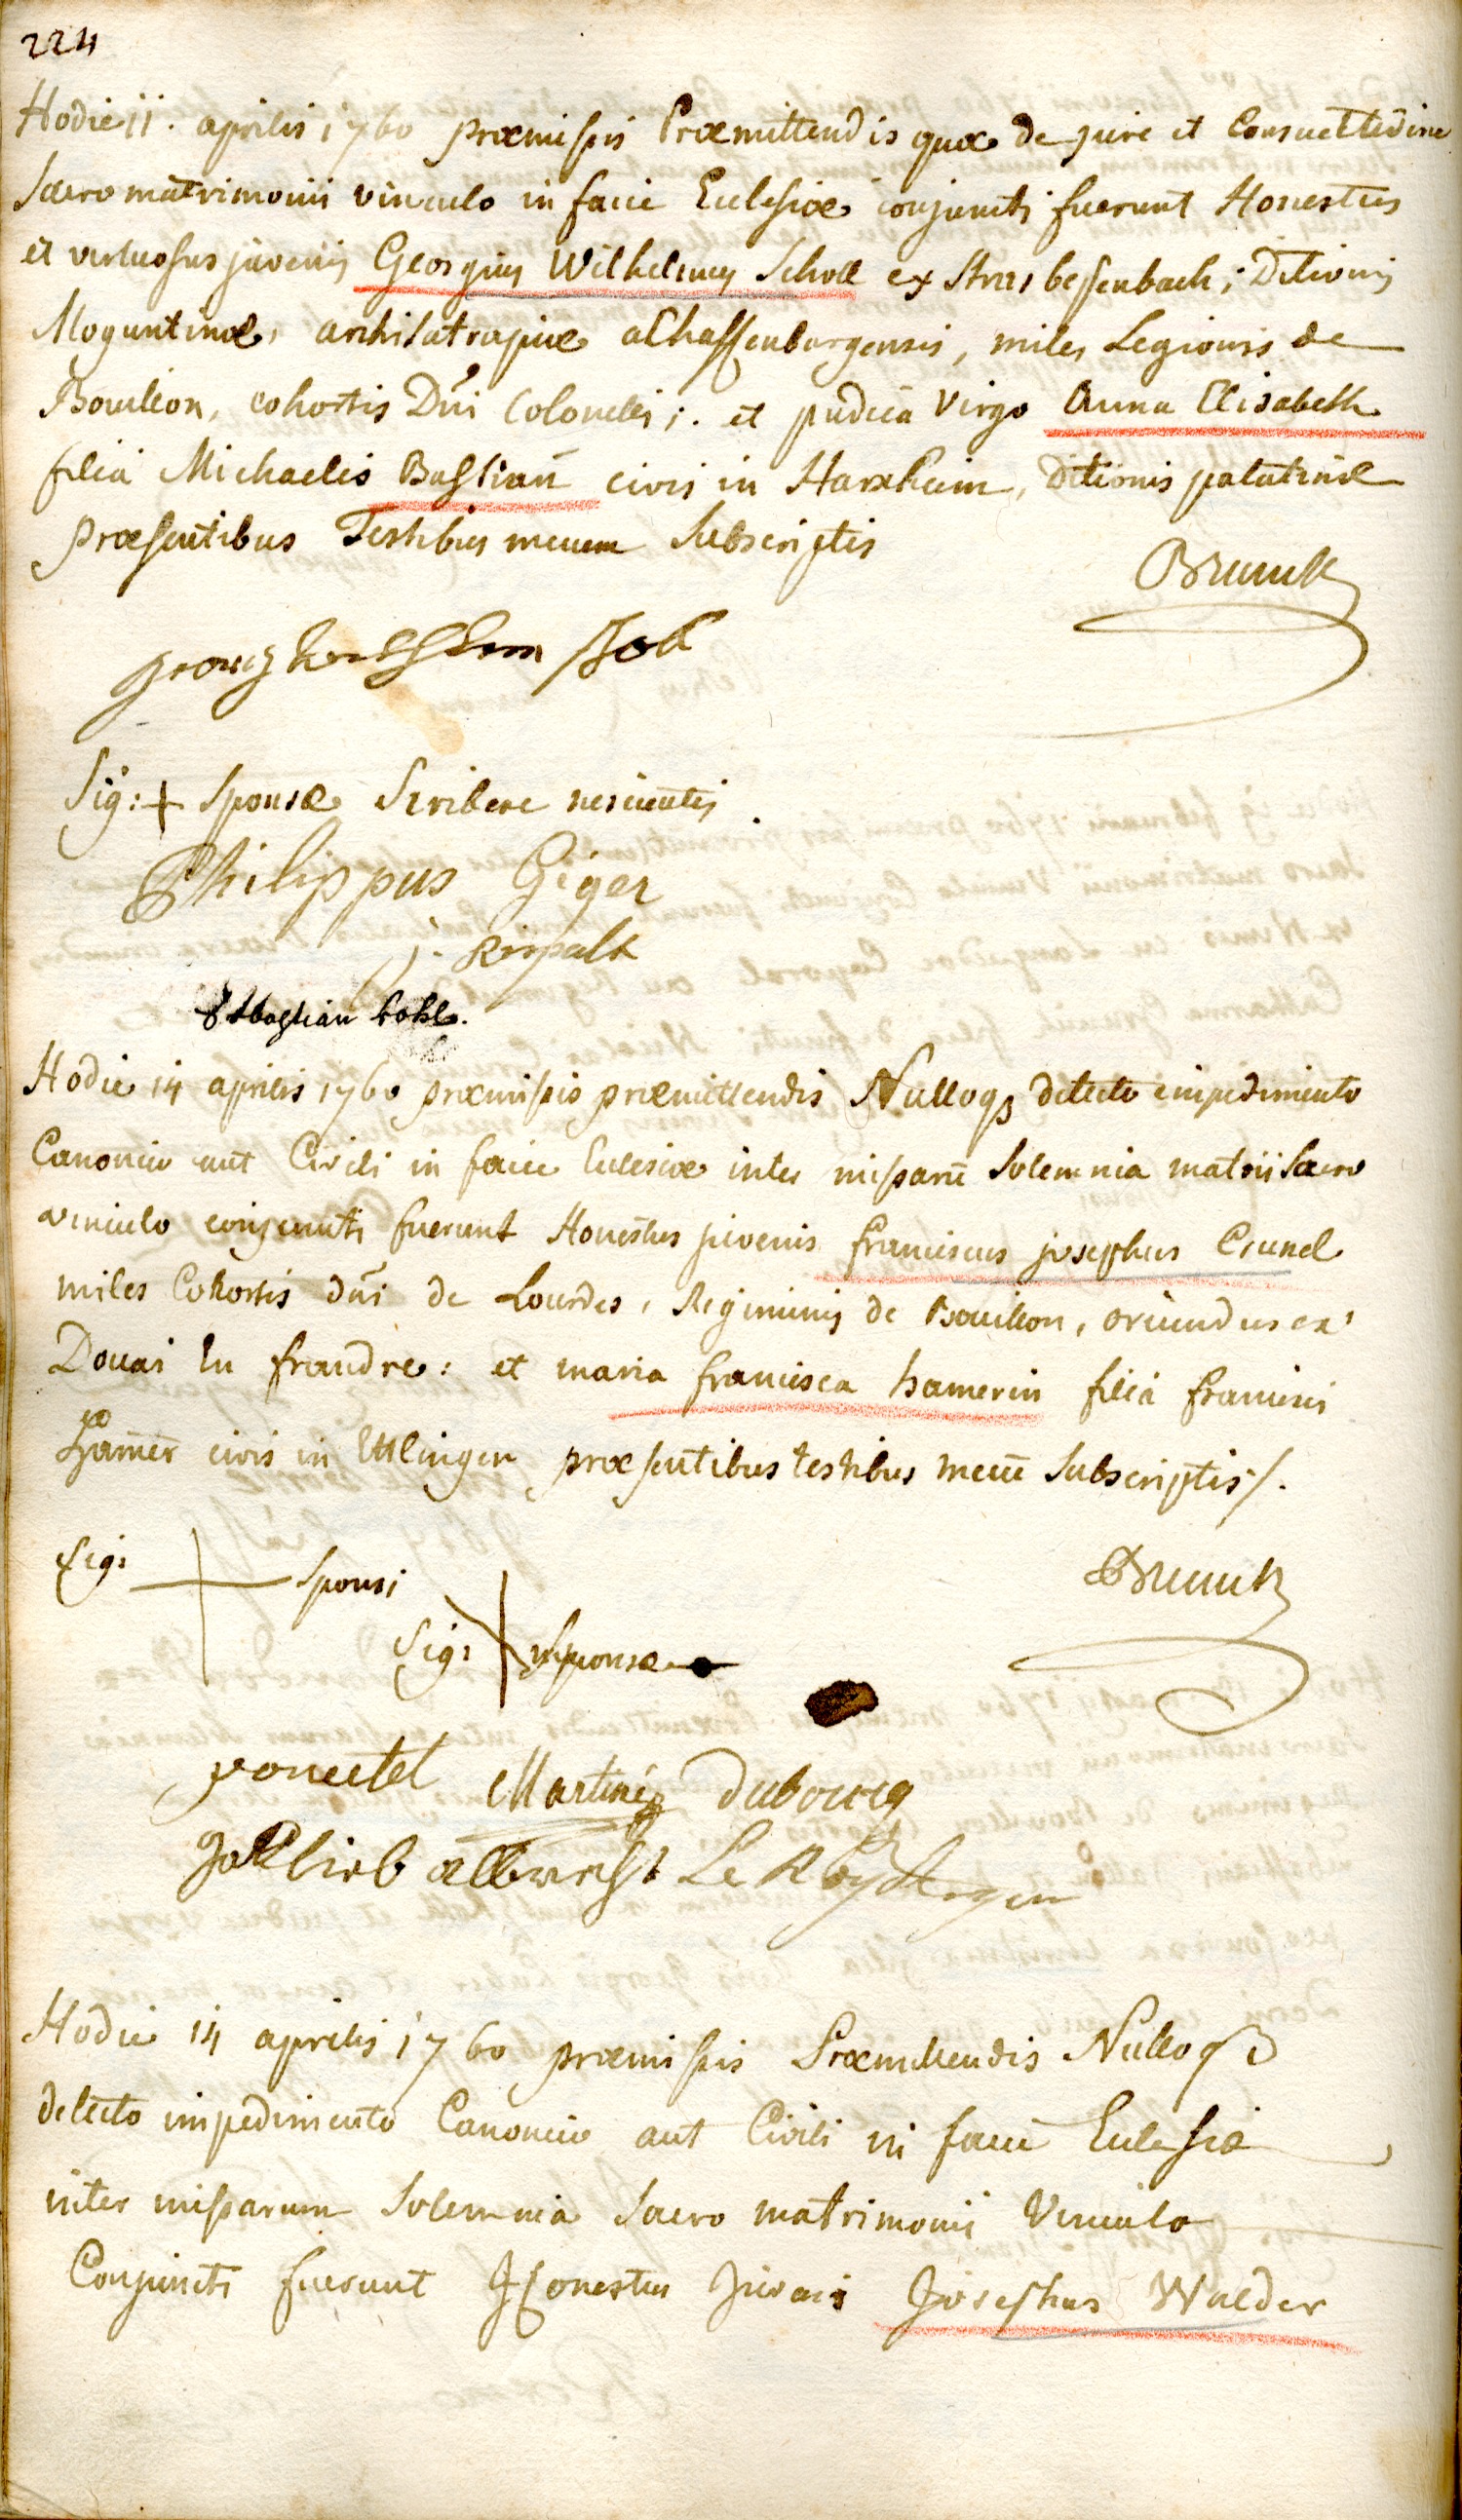 224
Hodie 11. aprilis 1760 præmissis Præmittendis quæ de jure et Consuettudine
Sacro matrimonii vinculo in facie Ecclesiæ conjuncti fuerunt Honestus
et virtuosus juvenis Georgius Wilhelmus Scholl ex Stras bessenbach; Ditionis
Moguntinæ, archisatrapiæ aschaffenburgensis, miles Legionis de
Bouillon, cohortis Dni Colonelli;. et pudica Virgo Anna Elisabeth
filia Michaelis Bastian civis in Harxheim, Ditionis palatinæ
præsentibus Testibus mecum Subscriptis
Brunck
georg Scholl
Sig: + Sponsæ Scribere nescientis.
Philippus Giger
J. Rispalt
Sebastian Kohl.
Hodie 14 aprilis 1760 præmissis præmittendis Nulloq3 detecto impedimento
Canonico aut Civili in facie Ecclesiæ inter missarū Solemnia matrii Sacro
vinculo conjuncti fuerunt Honestus juvenis franciscus josephus Crunel
miles Cohortis dni de Lourdes, Regiminis de Bouillon, oriundus ex
Douai En flandre: et maria francisca hamerin filia francisci
Hamer civis in Ettlingen præsentibus testibus mecū Subscriptis /.
Brunck
Sig: + Sponsi
Sig: + Sponsæ
Martinez dubourg
gottlieb albrecht Le Roy
Hodie 14 aprilis 1760 præmissis Præmittendis Nulloq3
detecto impedimento Canonico aut Civili in facie Ecclesiæ
inter missarum Solemnia Sacro matrimonii Vinculo
Conjuncti fuerunt Honestus Juvenis Josephus Walder